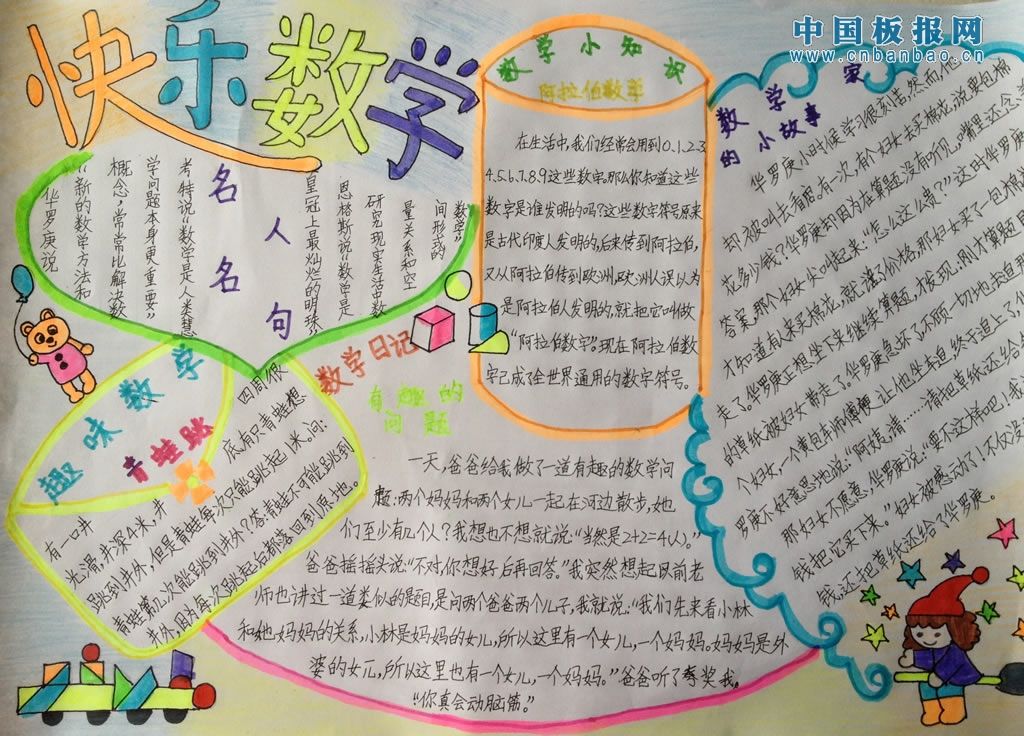 中国板报网
www.cnbanbao.cn
快乐数学
名人名句
数学"
间形式的
量关系和空
研究现实生活中数
恩格斯说"数学是
皇冠上最灿烂的明珠
考特说"数学是人类慧
学问题本身更重要"
概念,常常比解决数
"新的数学方法和
华罗庚说
数学小知识
阿拉伯数字
在生活中,我们经常会用到0.1.2.3
4.5.6.7.8.9这些数字。那么你知道这些
数字是谁发明的吗?这些数字符号原来
是古代印度人发明的,后来传到阿拉伯,
又从阿拉伯传到欧洲,欧洲人误以为
是阿拉伯人发明的,就把它叫做
"阿拉伯数字"。现在阿拉伯数
字已成了全世界通用的数字符号。
数学家
的小故事
华罗庚小时候学习很刻苦,然而他
却被叫去看店。有一次,有个妇女去买棉花,说要包棉
花多少钱?华罗庚却因为在算题,没有听见,嘴里还念
答案,那个妇女尖叫起来:"怎么这么贵?"这时华罗庚
才知道有人来买棉花,就说了价格,那妇女买了一包棉花
走了。华罗庚正想坐下来继续算题,才发现,刚才算题用
的草纸被妇女带走了。华罗庚急坏了,不顾一切地去追那
个妇女,一个黄包车师傅便让他坐车追,终于追上了,华
罗庚不好意思地说:"阿姨,请……请把草纸还给
那妇女不愿意,华罗庚说:"要不这样吧!我
钱把它买下来。"妇女被感动了!不仅没
钱,还把草纸还给了华罗庚。
趣味数字
青蛙跳
四周很
有一口井
底,有只青蛙想
光滑,井深4米,井
跳到井外,但是青蛙每次只能跳起1米。问:
青蛙第几次能跳到井外?答:青蛙不可能跳到
井外,因为每次跳起后都落回到原地。
数学日记
有趣的
问题
一天,爸爸给我做了一道有趣的数学问
题:两个妈妈和两个女儿一起在河边散步,她
们至少有几个人?我想也不想就说:"当然是2+2=4(人)。"
爸爸摇摇头说:"不对,你想好后再回答。"我突然想起以前老
师也讲过一道类似的题目,是问两个爸爸两个儿子,我就说:"我们先来看小林
和她妈妈的关系,小林是妈妈的女儿,所以这里有一个女儿,一个妈妈。妈妈是外
婆的女儿,所以这里也有一个女儿,一个妈妈。"爸爸听了夸奖我,
"你真会动脑筋。"